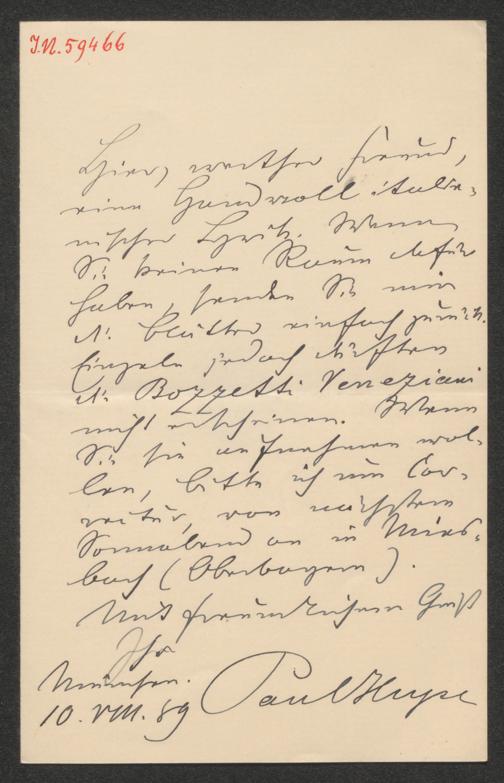 J.N. 59466
Hier, werther Freund,
eine Handvoll italie-
nischer Lyrik. Wenn
Sie keinen Raum dafür
haben, senden Sie mir
die Blätter einfach zurück.
Einzeln jedoch dürften
die Bozzetti Veneziani
nicht erscheinen. Wenn
Sie sie aufnehmen wol-
len, bitte ich um Cor-
rectur, von nächstem
Sonnabend an in Mies-
bach (Oberbayern).
Mit freundlichem Gruß
Ihr
Paul Heyse
München.
10. VIII. 89